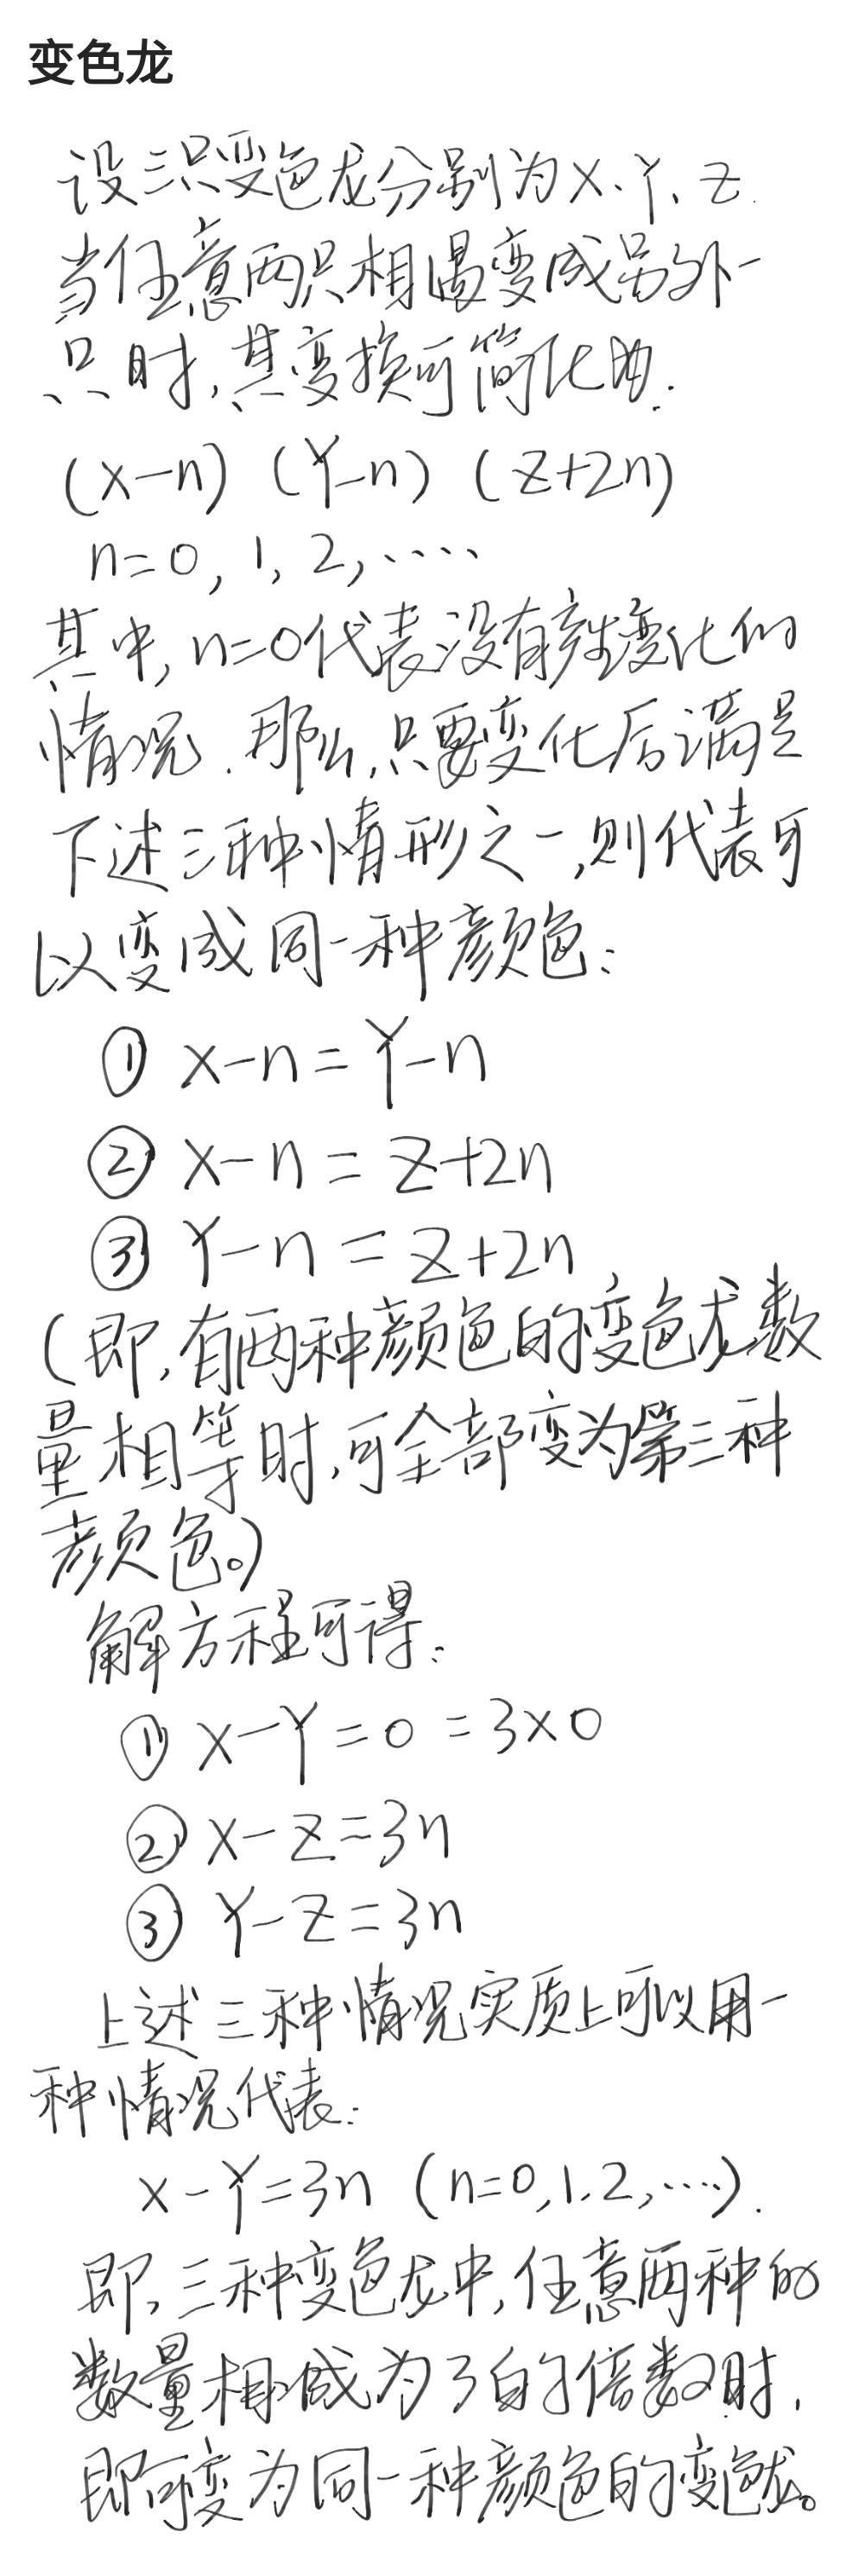 变色龙
设三只变色龙分别为X、Y、Z.
当任意两只相遇变成另外一
只时,其变换可简化为.
(X-n) (Y-n) (Z+2n)
n=0, 1, 2, ····
其中, n=0代表没有产生变化的
情况. 那么,只要变化后满足
下述三种情形之一,则代表可
以变成同一种颜色:
① X-n=Y-n
② X-n=Z+2n
③ Y-n=Z+2n
(即,有两种颜色的变色龙数
量相等时,可全部变为第三种
颜色。)
解方程可得:
① X-Y=0=3×0
② X-Z=3n
③ Y-Z=3n
上述三种情况实质上可以用一
种情况代表:
X-Y=3n (n=0,1.2,····).
即,三种变色龙中,任意两种的
数量相减为3的倍数时,
即可变为同一种颜色的变色龙。